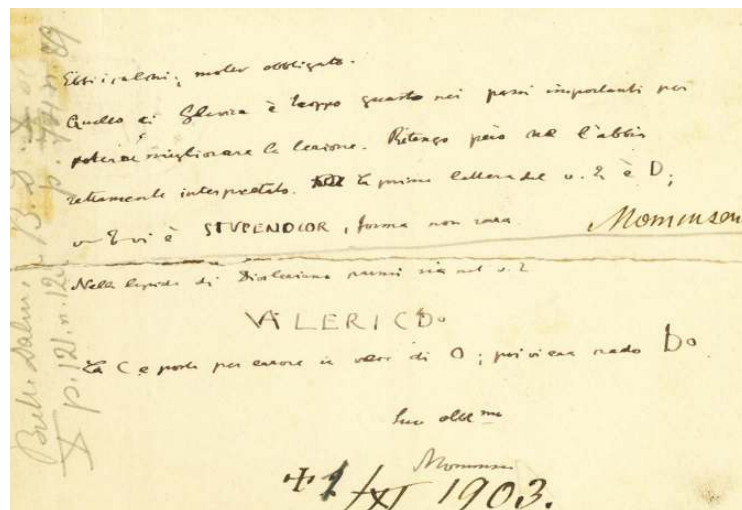 Ebbi i calchi; molto obbligato.
Quello di Glavica è troppo guasto nei passi importanti per
poterne migliorare la lezione. Ritengo però che l'abbia
rettamente interpretato. La prima lettera del v. 2 è D;
vi è STVPENDIOR, forma non rara. Mommsen
Nella lapide di Diocleziano parmi sia nel v. 2
VALERIC Do
La C è posta per errore in vece di O; poi viene Do
Suo obbl mo
Mommsen
✝ 1/XI 1903.
Bull. Dalm.
p. 121. n. 12
B. D. X
p. n. 89